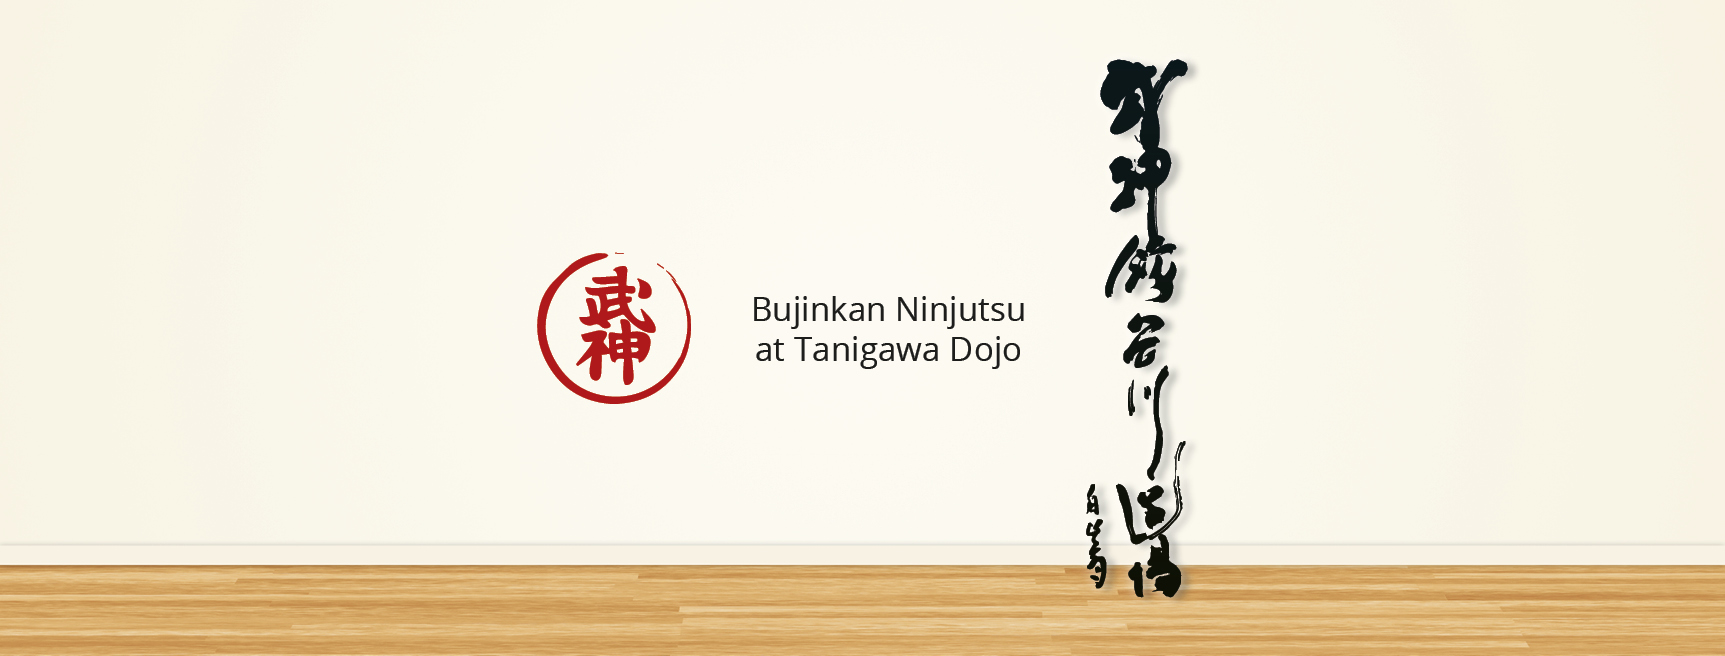 武神
Bujinkan Ninjutsu
at Tanigawa Dojo
武神館谷川道場